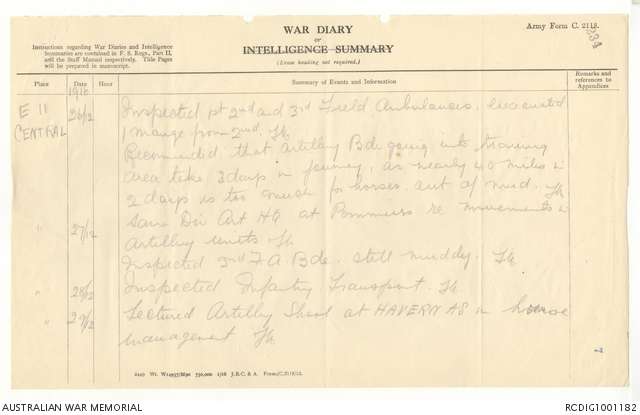 WAR DIARY
or
INTELLIGENCE SUMMARY
(Erase heading not required.)
Army Form C. 2118.
234
Instructions regarding War Diaries and Intelligence
Summaries are contained in F. S. Regs., Part II.
and the Staff Manual respectively. Title Pages
will be prepared in manuscript.
Place Date Hour Summary of Events and Information Remarks and references to Appendices
1916
E 11 CENTRAL 26/12 Inspected 1st 2nd and 3rd Field Ambulances. evacuated
1 mange from 2nd.
Recommended that Artillery Bde going into training
area take 3 days on journey, as nearly 40 miles in
2 days is too much for horses out of mud.
" 27/12 Saw Div Art HQ at Pommiers re movements in
Artillery units.
Inspected 3rd F.A. Bde. still muddy.
" 28/12 Inspected Infantry Transport.
" 29/12 Lectured Artillery School at HAVERNAS on horse
management
2449 Wt. W14957/M90 750,000 1/16 J.B.C. & A. Forms/C.2118/12.
AUSTRALIAN WAR MEMORIAL
RCDIG1001182